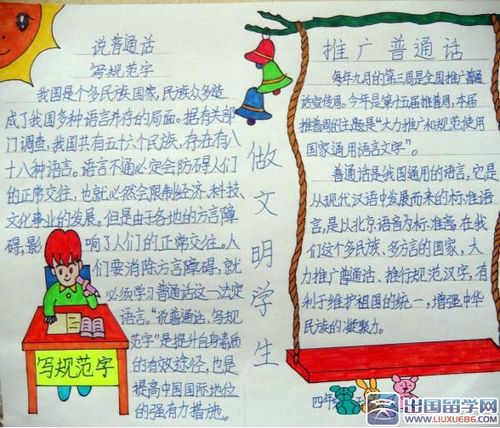 说普通话
写规范字
我国是个多民族国家,民族众多造
成了我国多种语言并存的局面。据有关部
门调查,我国共有五十六个民族,存在有八
十八种语言。语言不通必定会防碍人们
的正常交往,也就必然会限制经济、科技、
文化事业的发展。但是由于各地的方言障
碍,影响了人们的正常交往。人
们要消除方言障碍,就
必须学习普通话这一法定
语言。“说普通话、写规
范字”是提升自身素质
的有效途径,也是
提高中国国际地位
的强有力措施。
写规范字
做文明学生
推广普通话
每年九月的第三周是全国推广普通
话宣传周。今年是第十五届推普周,本届
推普周的主题是“大力推广和规范使用
国家通用语言文字”。
普通话是我国通用的语言,它是
从现代汉语中发展而来的标准语
言,是以北京语音为标准音。在我
们这个多民族、多方言的国家,大
力推广普通话、推行规范汉字,有
利于维护祖国的统一,增强中华
民族的凝聚力。
四年
出国留学网
WWW.LIUXUE86.COM